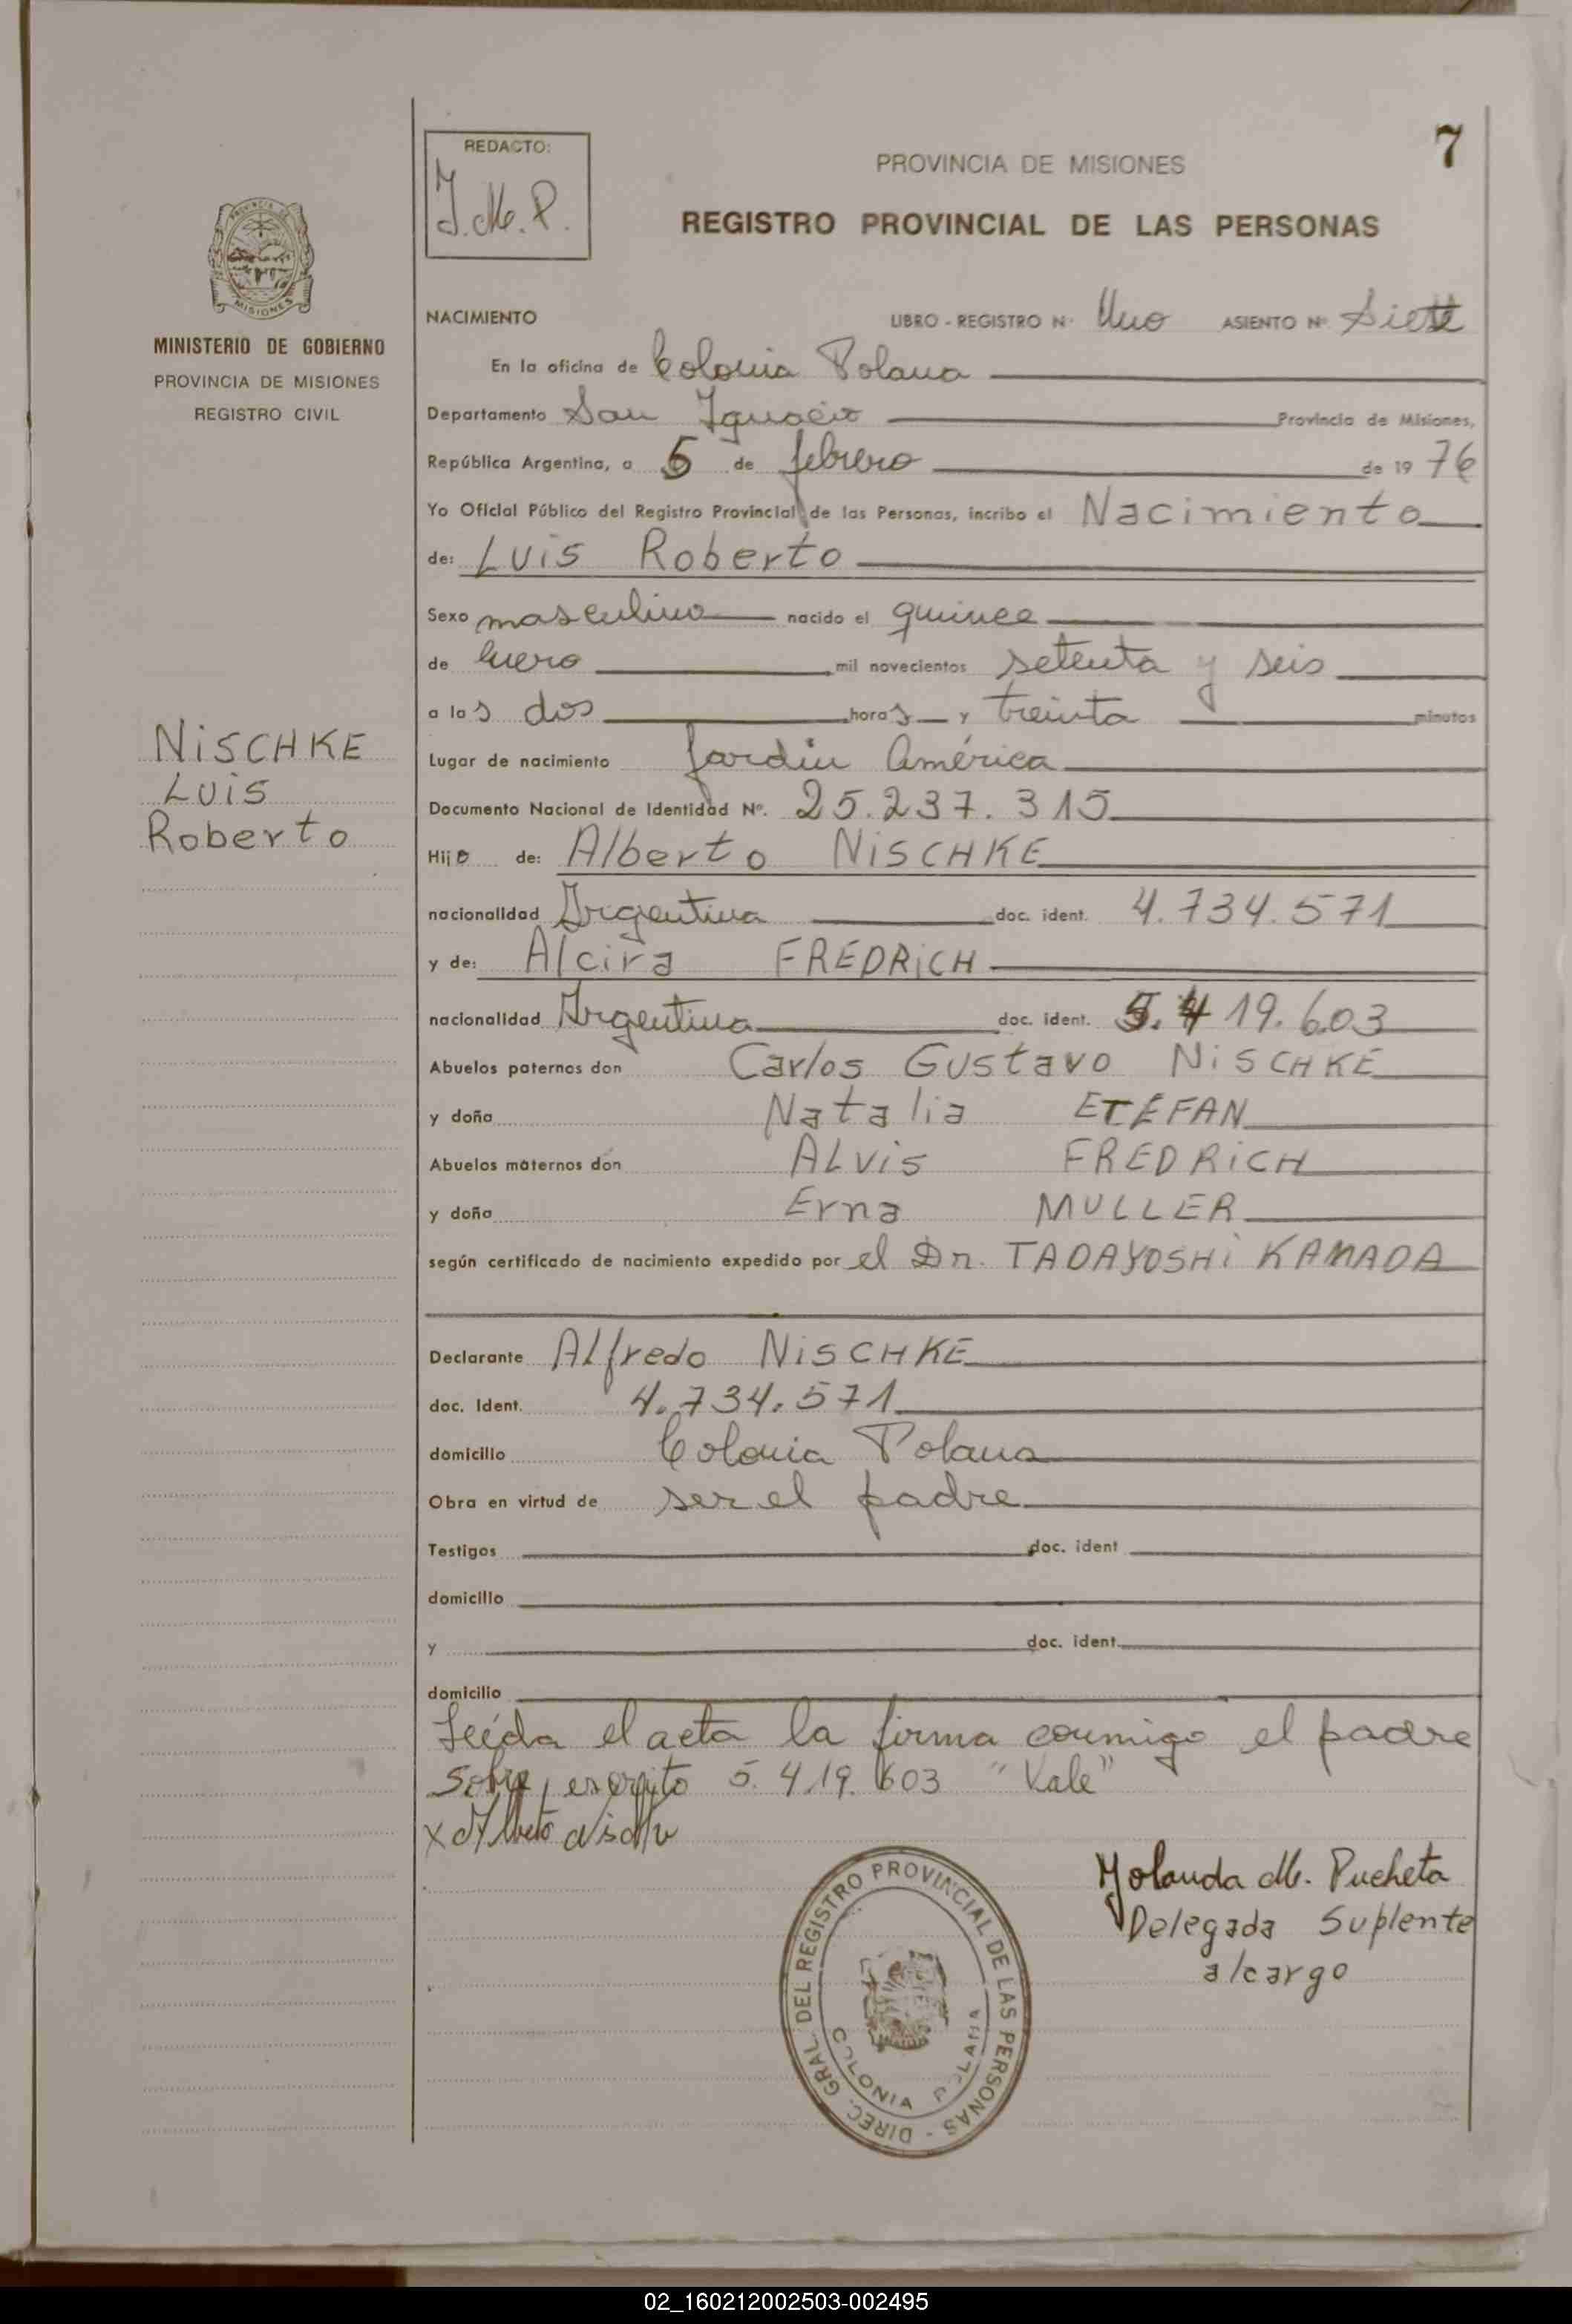 7
REDACTO:
Y. M. P.
PROVINCIA DE MISIONES
REGISTRO PROVINCIAL DE LAS PERSONAS
MISIONES
MINISTERIO DE GOBIERNO
PROVINCIA DE MISIONES
REGISTRO CIVIL
NISCHKE
Luis
Roberto
NACIMIENTO LIBRO - REGISTRO N° Uno ASIENTO N° Siete
En la oficina de Colonia Polana
Departamento San Ignacio Provincia de Misiones,
República Argentina, a 5 de febrero de 19 76
Yo Oficial Público del Registro Provincial de las Personas, incribo el Nacimiento
de: Luis Roberto
Sexo masculino nacido el quince
de Enero mil novecientos setenta y seis
a las dos horas y treinta minutos
Lugar de nacimiento Jardin América
Documento Nacional de Identidad N°. 25.237.315
Hijo de: Alberto NISCHKE
nacionalidad Argentina doc. ident. 4.734.571
y de: Alcira FREDRICH
nacionalidad Argentina doc. ident. 5.419.603
Abuelos paternos don Carlos Gustavo NISCHKE
y doña Natalia ETEFAN
Abuelos maternos don ALVIS FREDRICH
y doña Erna MULLER
según certificado de nacimiento expedido por el Dr. TADAYOSHI KAMADA
Declarante Alfredo NISCHKE
doc. Ident. 4.734.571
domicilio Colonia Polana
Obra en virtud de ser el padre
Testigos doc. ident
domicilio
y doc. ident.
domicilio
Leída el acta la firma conmigo el padre
Sobre escrito 5.419.603 "Vale"
x Alberto
Yolanda M. Pucheta
Delegada Suplente
alcargo
DIREC. GRAL. DEL REGISTRO PROVINCIAL DE LAS PERSONAS -
COLONIA POLANA
02_160212002503-002495